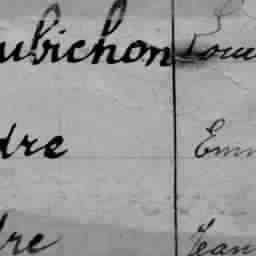 ubichon Loui
dre Emm
dre Jean